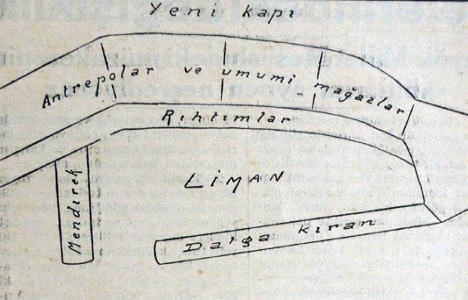 Yeni kapı
Antrepolar ve umumi mağazlar
Rıhtımlar
LİMAN
Mendirek
Dalga kıran